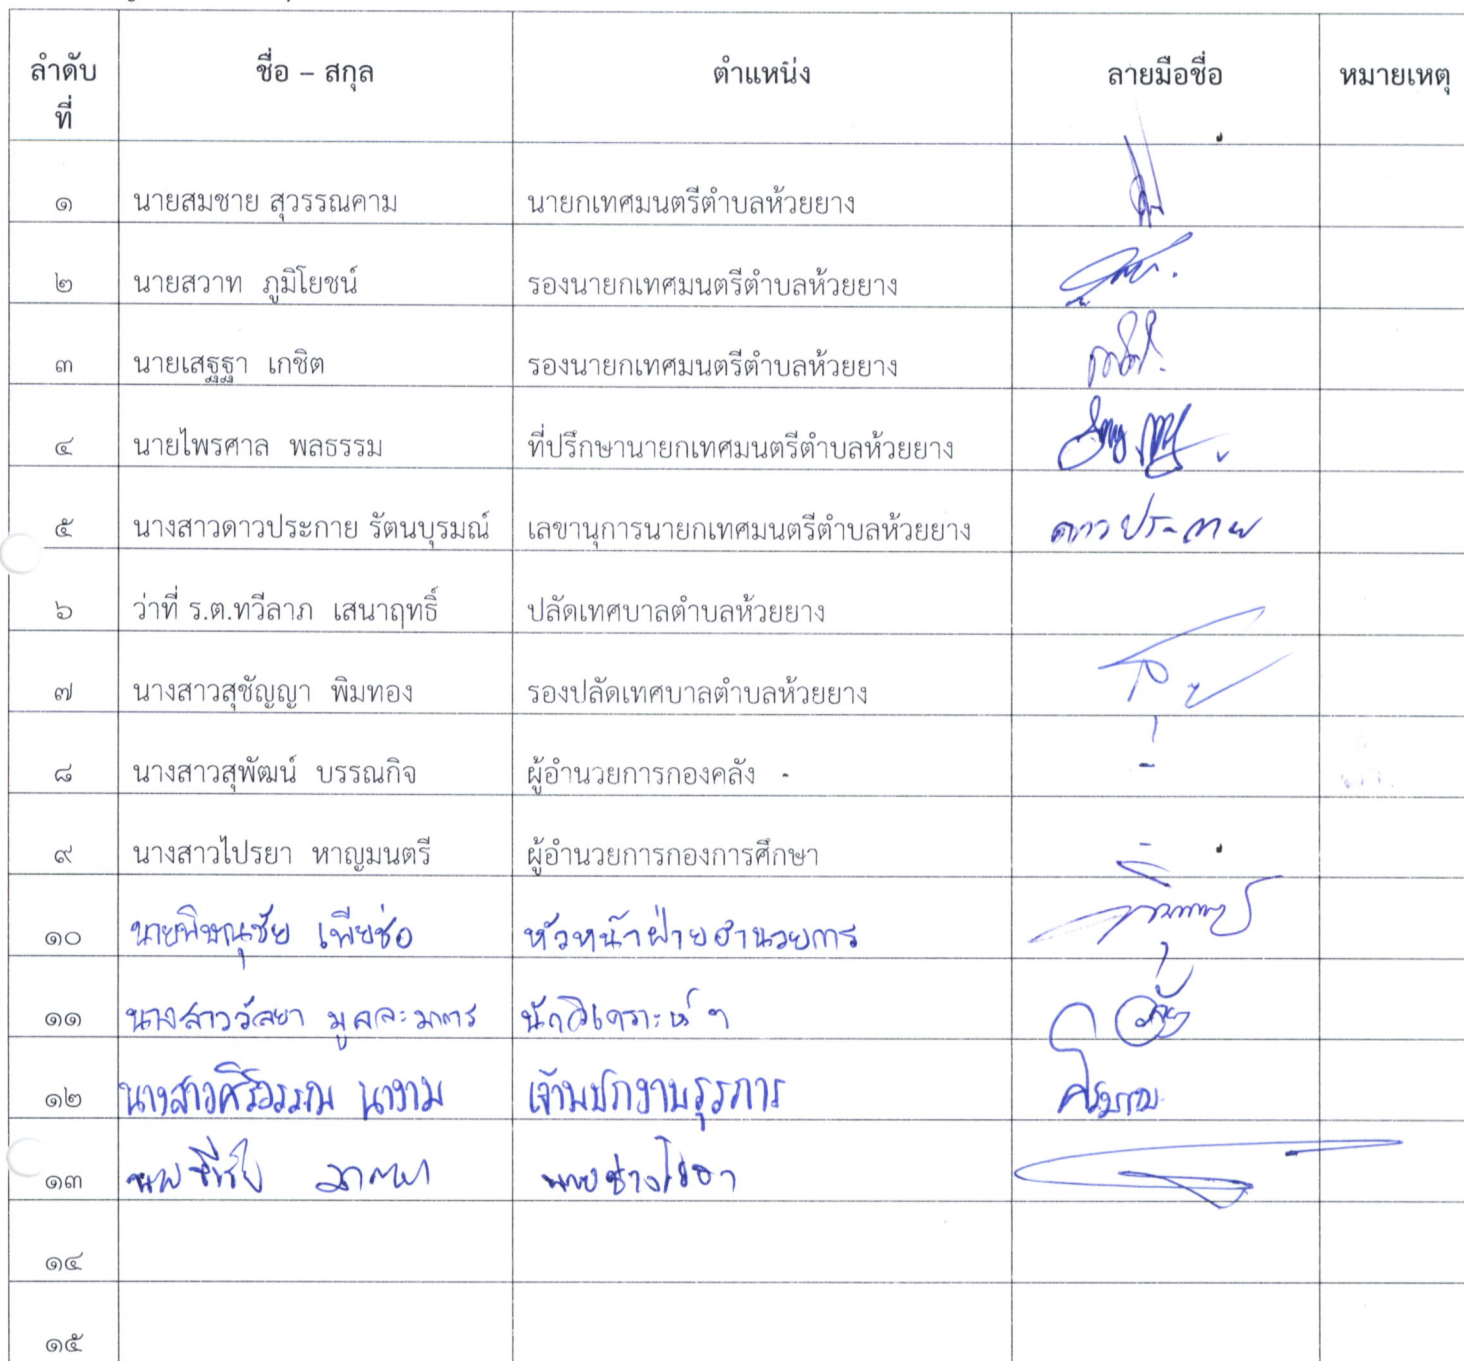 ลำดับ ชื่อ – สกุล ตำแหน่ง ลายมือชื่อ หมายเหตุ
ที่
๑ นายสมชาย สุวรรณคาม นายกเทศมนตรีตำบลห้วยยาง
๒ นายสวาท ภูมิโยชน์ รองนายกเทศมนตรีตำบลห้วยยาง
๓ นายเสฐฐา เกชิต รองนายกเทศมนตรีตำบลห้วยยาง
๔ นายไพรศาล พลธรรม ที่ปรึกษานายกเทศมนตรีตำบลห้วยยาง
๕ นางสาวดาวประกาย รัตนบุรมณ์ เลขานุการนายกเทศมนตรีตำบลห้วยยาง ดาวประกาย
๖ ว่าที่ ร.ต.ทวีลาภ เสนาฤทธิ์ ปลัดเทศบาลตำบลห้วยยาง
๗ นางสาวสุชัญญา พิมทอง รองปลัดเทศบาลตำบลห้วยยาง
๘ นางสาวสุพัฒน์ บรรณกิจ ผู้อำนวยการกองคลัง -
๙ นางสาวไปรยา หาญมนตรี ผู้อำนวยการกองการศึกษา -
๑๐ นายพิษณุชัย เพียช่อ หัวหน้าฝ่ายอำนวยการ
๑๑ นางสาววัลยา มูลละมาตร นักวิเคราะห์ ฯ
๑๒ นางสาวศิริวรรณ นางาม เจ้าพนักงานธุรการ ศิริวรรณ
๑๓ นายช่างโยธา
๑๔
๑๕